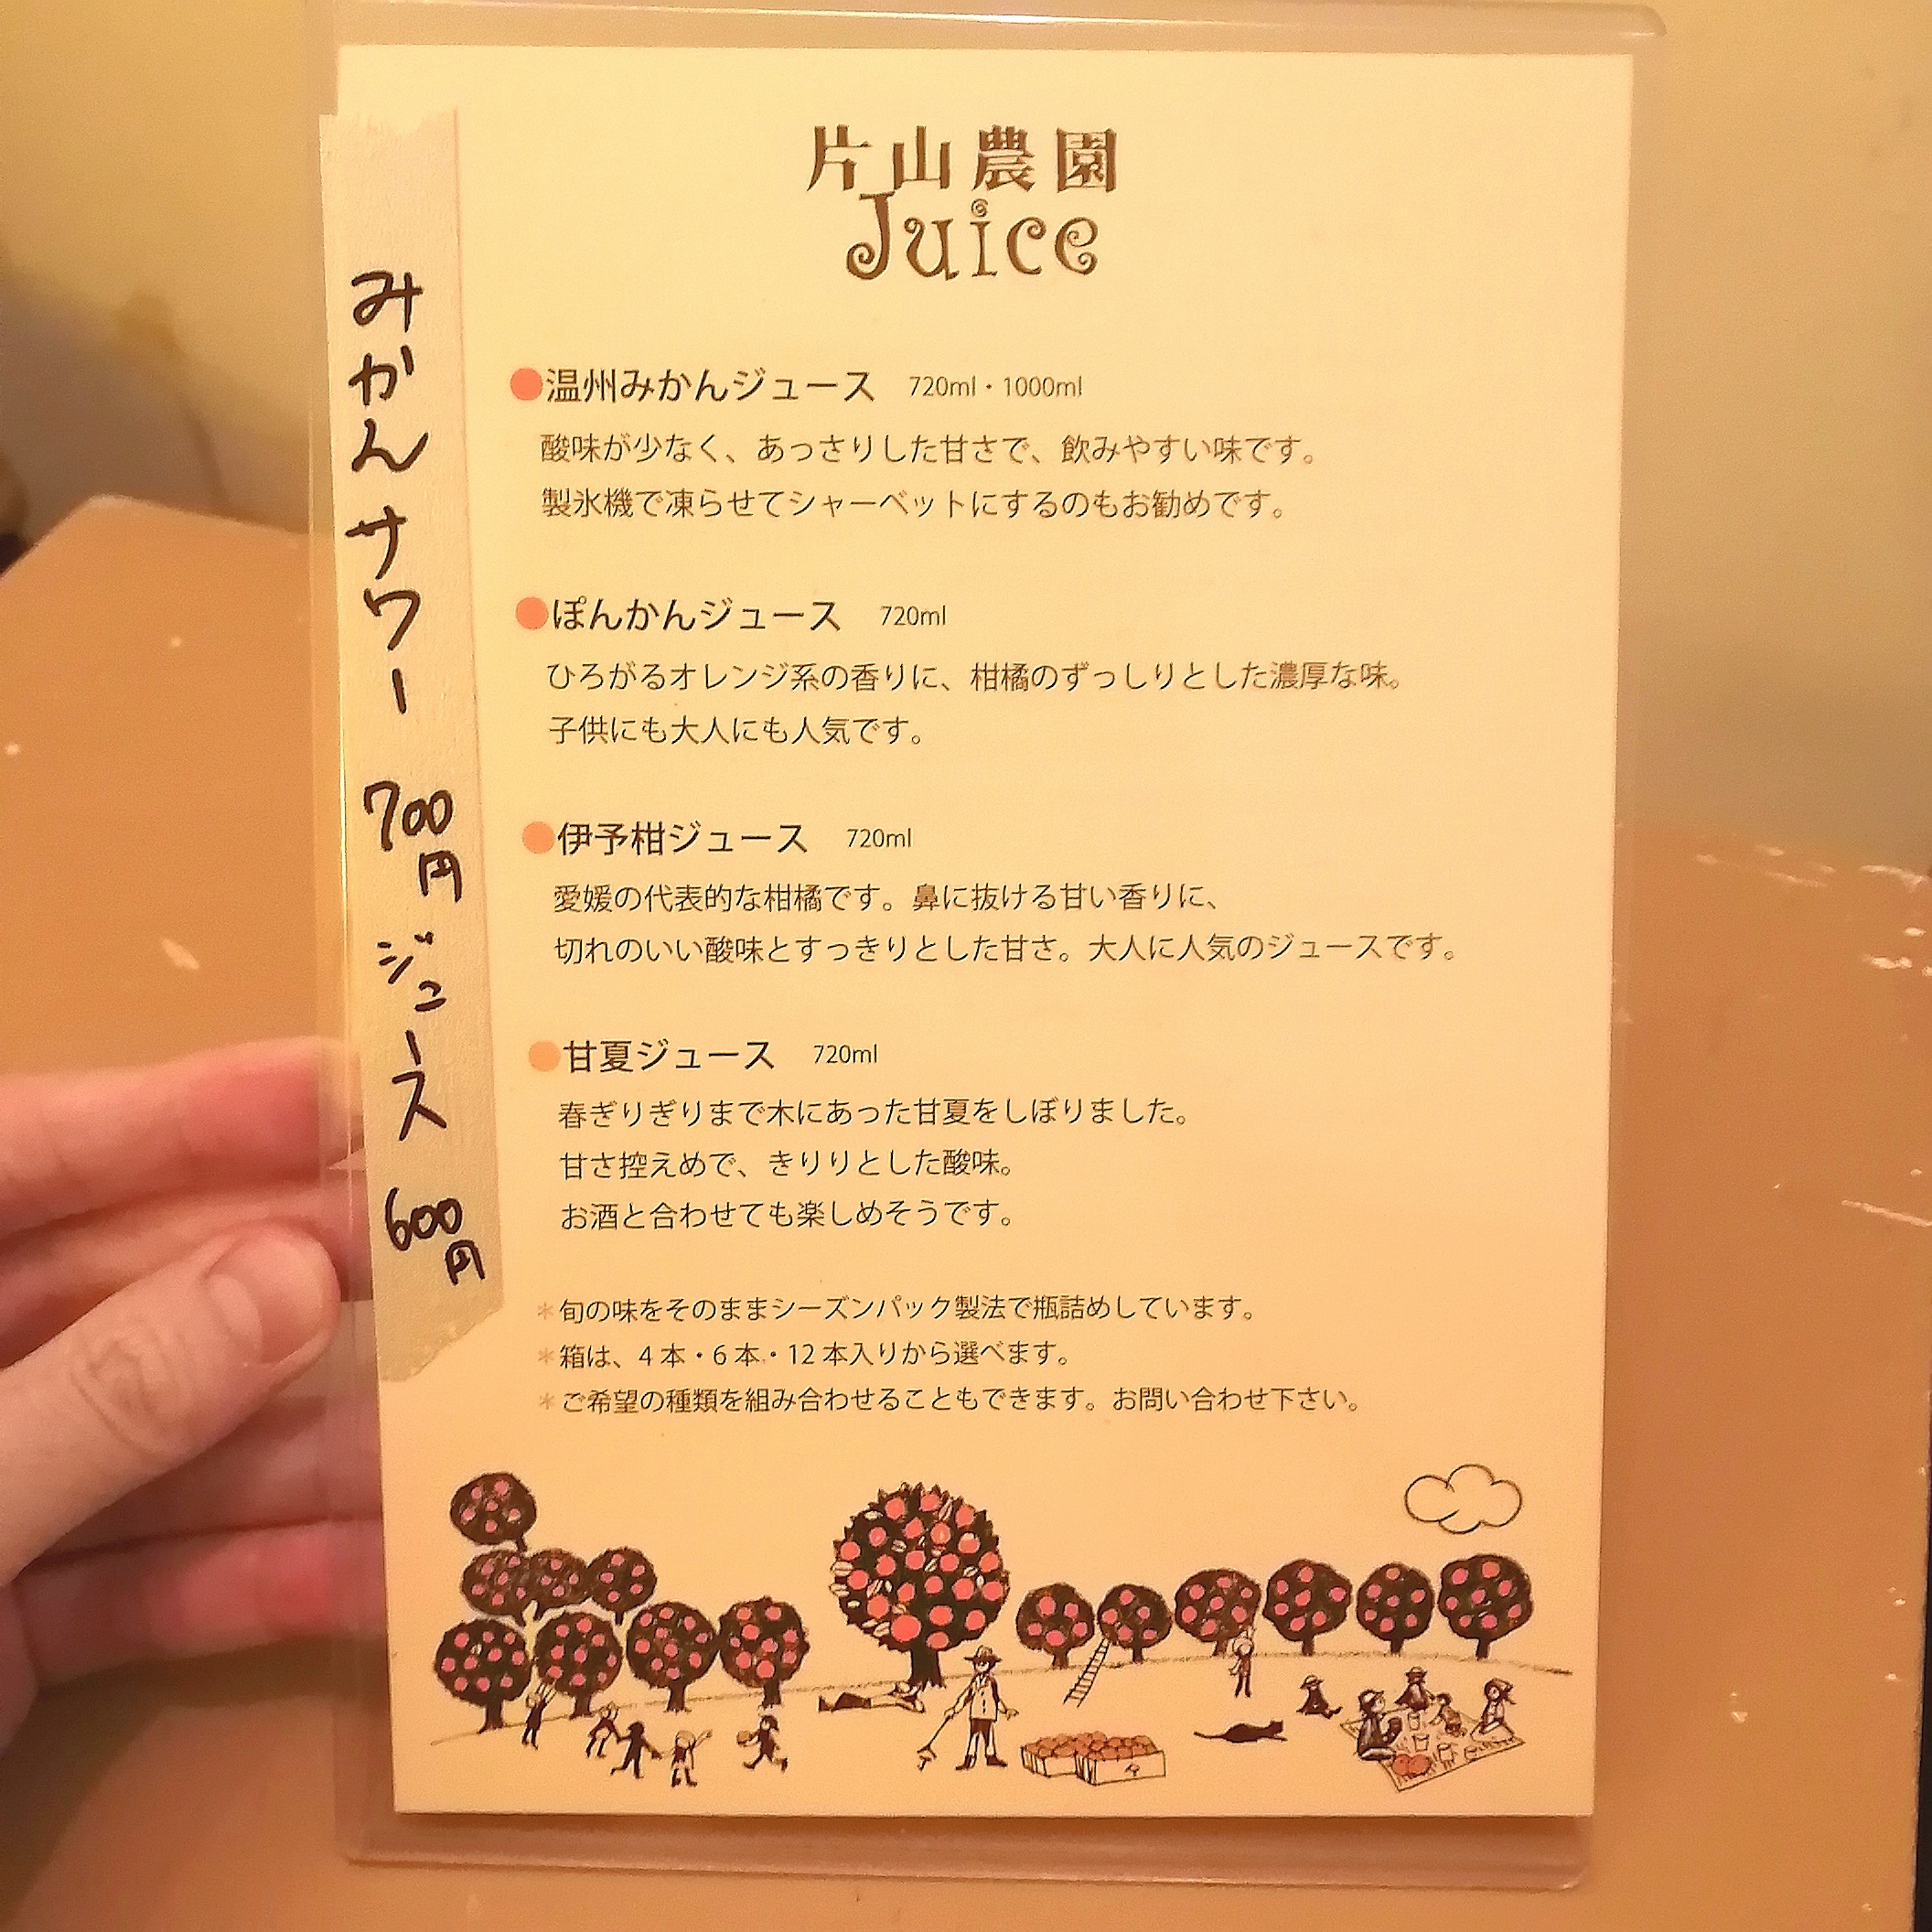 片山農園
Juice
みかんサワー 700円 ジュース 600円
●温州みかんジュース 720ml・1000ml
酸味が少なく、あっさりした甘さで、飲みやすい味です。
製氷機で凍らせてシャーベットにするのもお勧めです。
●ぽんかんジュース 720ml
ひろがるオレンジ系の香りに、柑橘のずっしりとした濃厚な味。
子供にも大人にも人気です。
●伊予柑ジュース 720ml
愛媛の代表的な柑橘です。鼻に抜ける甘い香りに、
切れのいい酸味とすっきりとした甘さ。大人に人気のジュースです。
●甘夏ジュース 720ml
春ぎりぎりまで木にあった甘夏をしぼりました。
甘さ控えめで、きりりとした酸味。
お酒と合わせても楽しめそうです。
＊旬の味をそのままシーズンパック製法で瓶詰めしています。
＊箱は、4本・6本・12本入りから選べます。
＊ご希望の種類を組み合わせることもできます。お問い合わせ下さい。